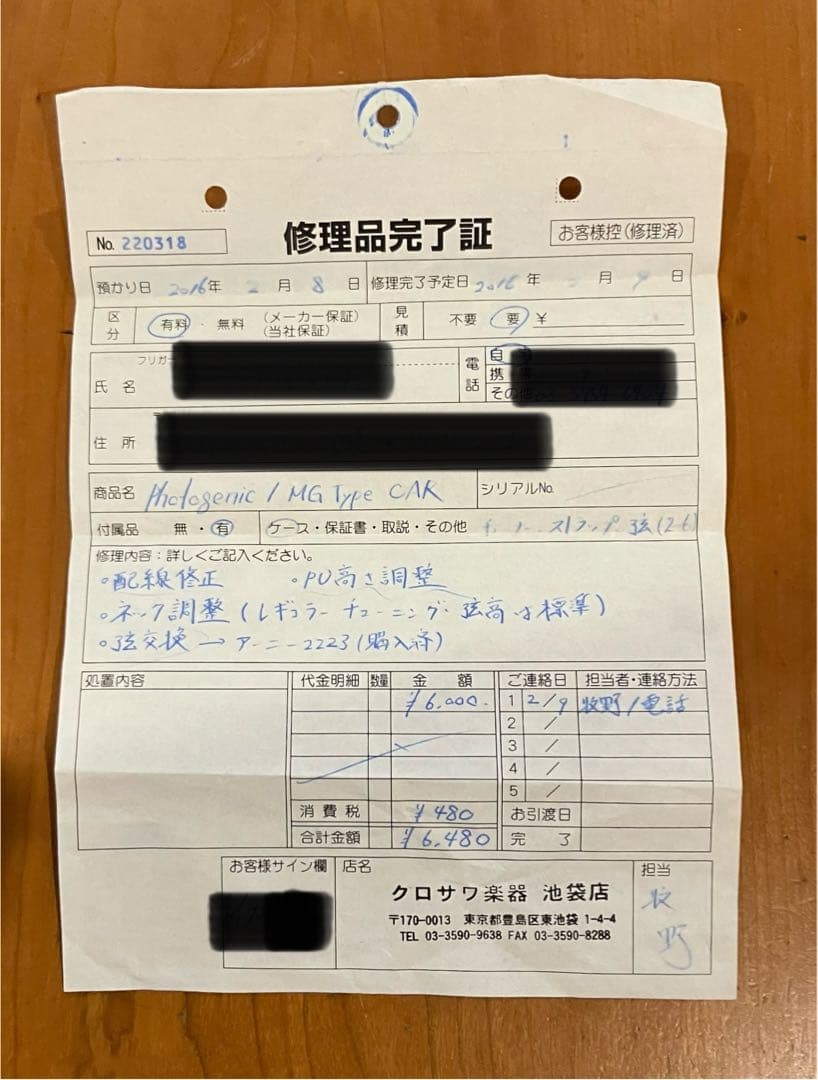 修理品完了証
No. 220318
お客様控(修理済)
預かり日 2016年 2月 8日 修理完了予定日 2016年 月 9日
区分 有料・無料 (メーカー保証)(当社保証) 見積 不要 要 ¥
フリガ
氏名
電話 自
携
その他
住所
商品名 Photogenic / MG Type CAR シリアルNo.
付属品 無・有 ケース・保証書・取説・その他 ストラップ 弦(2-6)
修理内容:詳しくご記入ください。
・配線修正 ・PU高さ調整
・ネック調整(レギュラーチューニング・弦高は標準)
・弦交換→アーニー2223(購入済)
処置内容 代金明細 数量 金額 ご連絡日 担当者・連絡方法
¥6,000. 1 2/9 牧野/電話
2 /
3 /
4 /
5 /
消費税 ¥480 お引渡日
合計金額 ¥6,480 完了
お客様サイン欄 店名 担当
クロサワ楽器 池袋店
〒170-0013 東京都豊島区東池袋 1-4-4
TEL 03-3590-9638 FAX 03-3590-8288
牧野